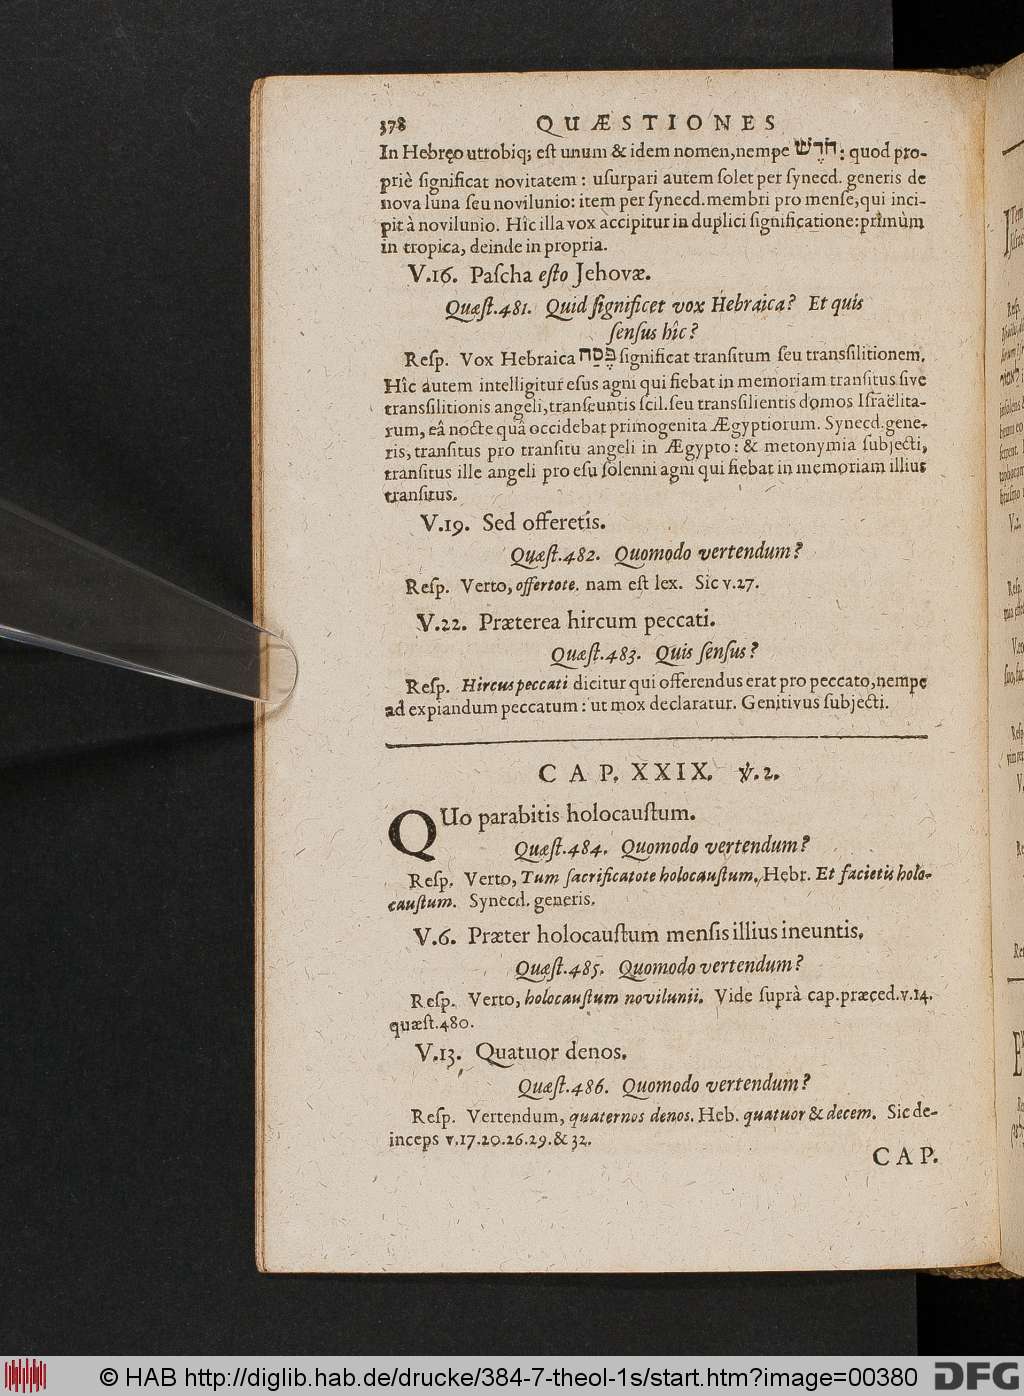 378 QUÆSTIONES
In Hebręo utrobiq; eſt unum & idem nomen, nempe חֹדֶשׁ: quod pro-
priè ſignificat novitatem: uſurpari autem ſolet per ſynecd. generis de
nova luna ſeu novilunio: item per ſynecd. membri pro menſe, qui inci-
pit à novilunio. Hîc illa vox accipitur in duplici ſignificatione: primùm
in tropica, deinde in propria.
V.16. Paſcha eſto Jehovæ.
Quæſt.481. Quid ſignificet vox Hebraica? Et quis
ſenſus hîc?
Reſp. Vox Hebraica פֶּסַח ſignificat tranſitum ſeu transſilitionem.
Hîc autem intelligitur eſus agni qui fiebat in memoriam tranſitus ſive
transſilitionis angeli, tranſeuntis ſcil. ſeu transſilientis domos Iſraëlita-
rum, eâ nocte quâ occidebat primogenita Ægyptiorum. Synecd. gene-
ris, tranſitus pro tranſitu angeli in Ægypto: & metonymia ſubjecti,
tranſitus ille angeli pro eſu ſolenni agni qui fiebat in memoriam illius
tranſitus.
V.19. Sed offeretis.
Quæſt.482. Quomodo vertendum?
Reſp. Verto, offertote. nam eſt lex. Sic v.27.
V.22. Præterea hircum peccati.
Quæſt.483. Quis ſenſus?
Reſp. Hircus peccati dicitur qui offerendus erat pro peccato, nempe
ad expiandum peccatum: ut mox declaratur. Genitivus ſubjecti.
CAP. XXIX. ℣.2.
QUo parabitis holocauſtum.
Quæſt.484. Quomodo vertendum?
Reſp. Verto, Tum ſacrificatote holocauſtum. Hebr. Et facietis holo-
cauſtum. Synecd. generis.
V.6. Præter holocauſtum mensis illius ineuntis.
Quæſt.485. Quomodo vertendum?
Reſp. Verto, holocauſtum novilunii. Vide ſuprà cap. præced. v.14.
quæſt.480.
V.13. Quatuor denos.
Quæſt.486. Quomodo vertendum?
Reſp. Vertendum, quaternos denos. Heb. quatuor & decem. Sic de-
inceps v.17.20.26.29.& 32.
CAP.
© HAB http://diglib.hab.de/drucke/384-7-theol-1s/start.htm?image=00380 DFG